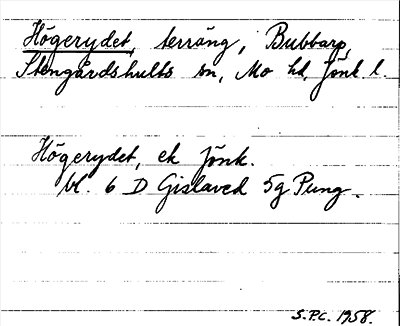 Högerydet, terräng, Bubbarp,
Stengårdshults sn, Mo hd, Jönk l.
Högerydet, ek Jönk.
bl. 6 D Gislaved 5g Pung.
S.P.C. 1958.